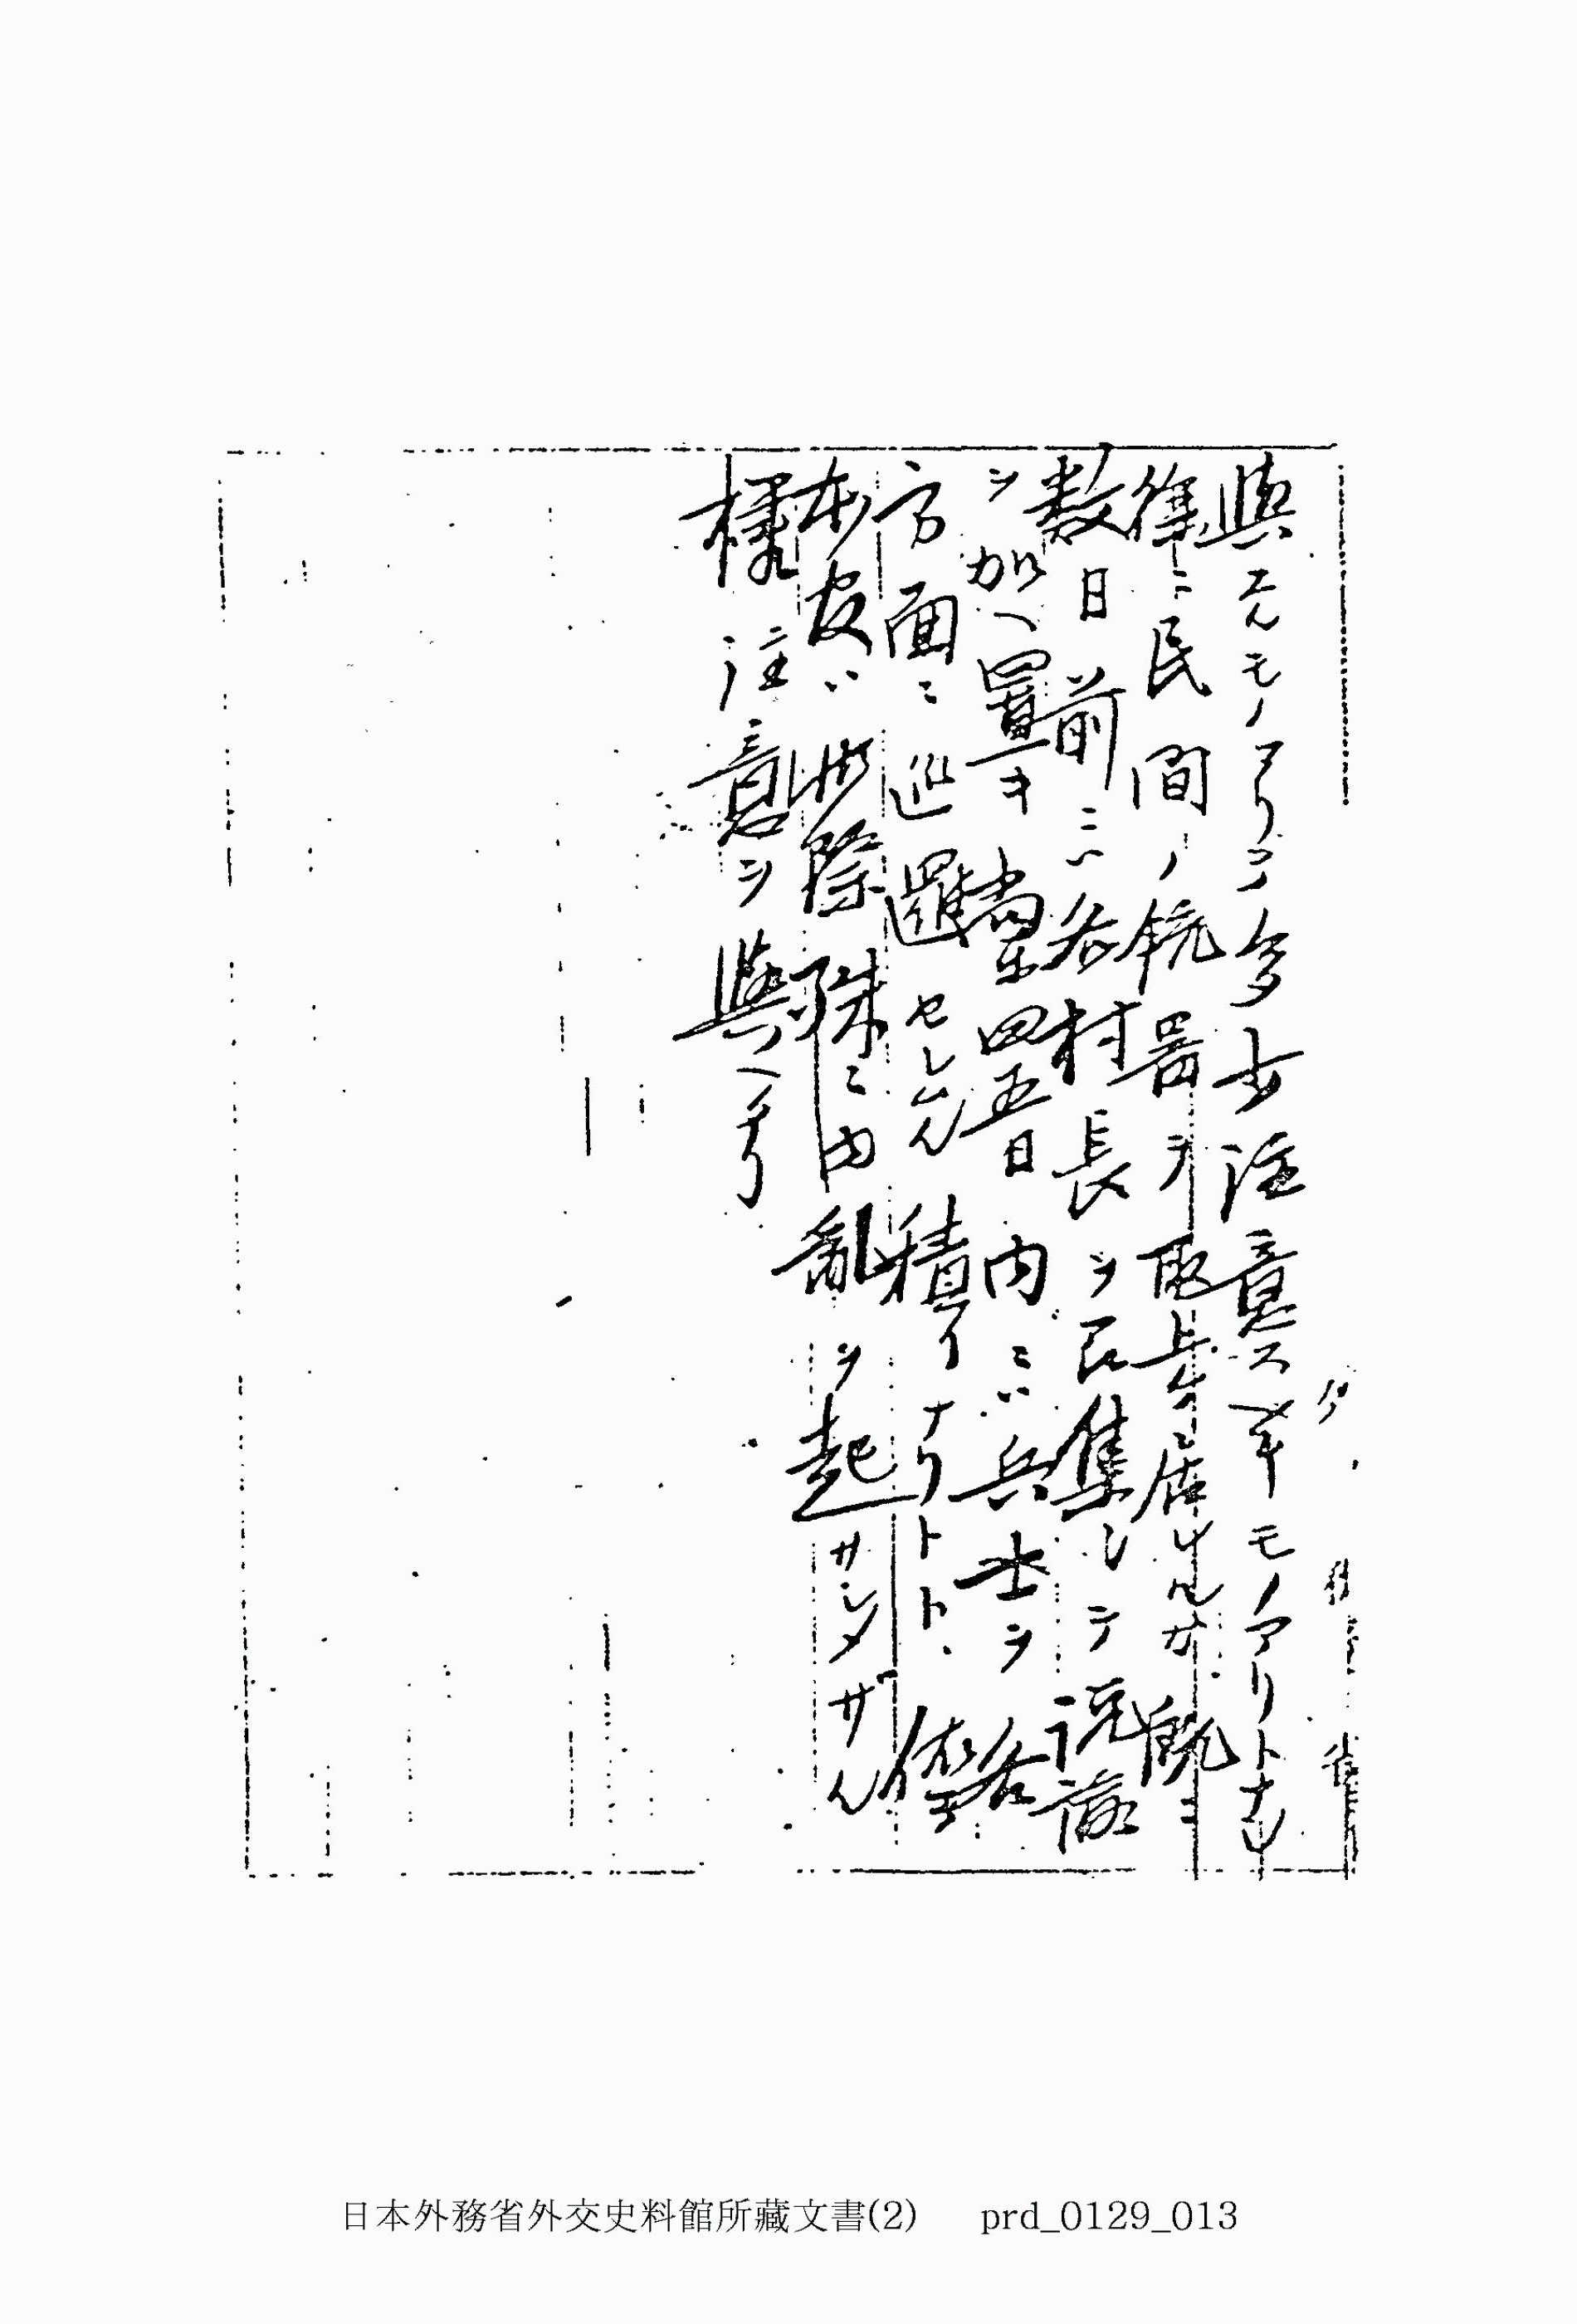 與エルモノアリテ多少注意スヘキモノアリトナシ
ニ民間ノ銃器ヲ取上ケ居ルカ既ニ
数日前ニハ各村長ヲ召集シテ説諭
ヲ加ヘ置キ尚ホ四五日内ニハ兵士ヲ各
方面ニ巡邏セシムル積リナリト、依テ
本官ハ此際殊ニ内乱ヲ起サシメサル
様注意ヲ與ヘタリ
外務省
日本外務省外交史料館所藏文書(2) prd_0129_013